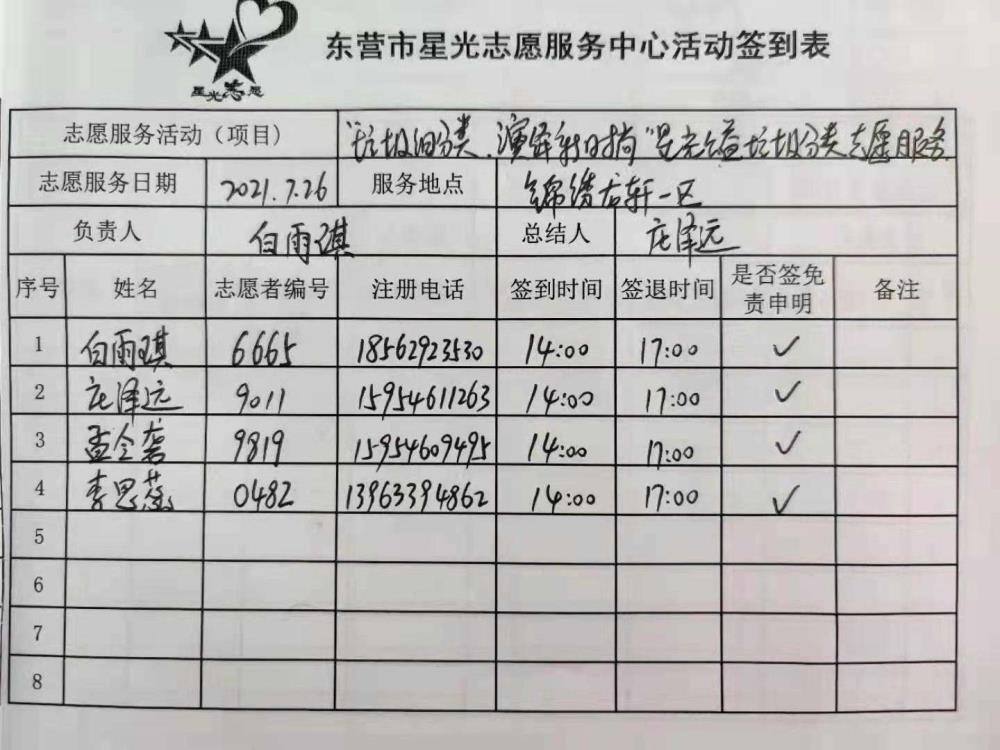 星光志愿
东营市星光志愿服务中心活动签到表
志愿服务活动（项目） “垃圾细分类、演绎新时尚”星光公益垃圾分类志愿服务
志愿服务日期 2021.7.26 服务地点 锦绣龙轩一区
负责人 白雨琪 总结人 庄泽远
序号 姓名 志愿者编号 注册电话 签到时间 签退时间 是否签免责申明 备注
1 白雨琪 6665 18562923530 14:00 17:00 ✓
2 庄泽远 9011 15954611263 14:00 17:00 ✓
3 孟令龚 9819 15954609495 14:00 17:00 ✓
4 李思蕊 0482 13963394862 14:00 17:00 ✓
5
6
7
8